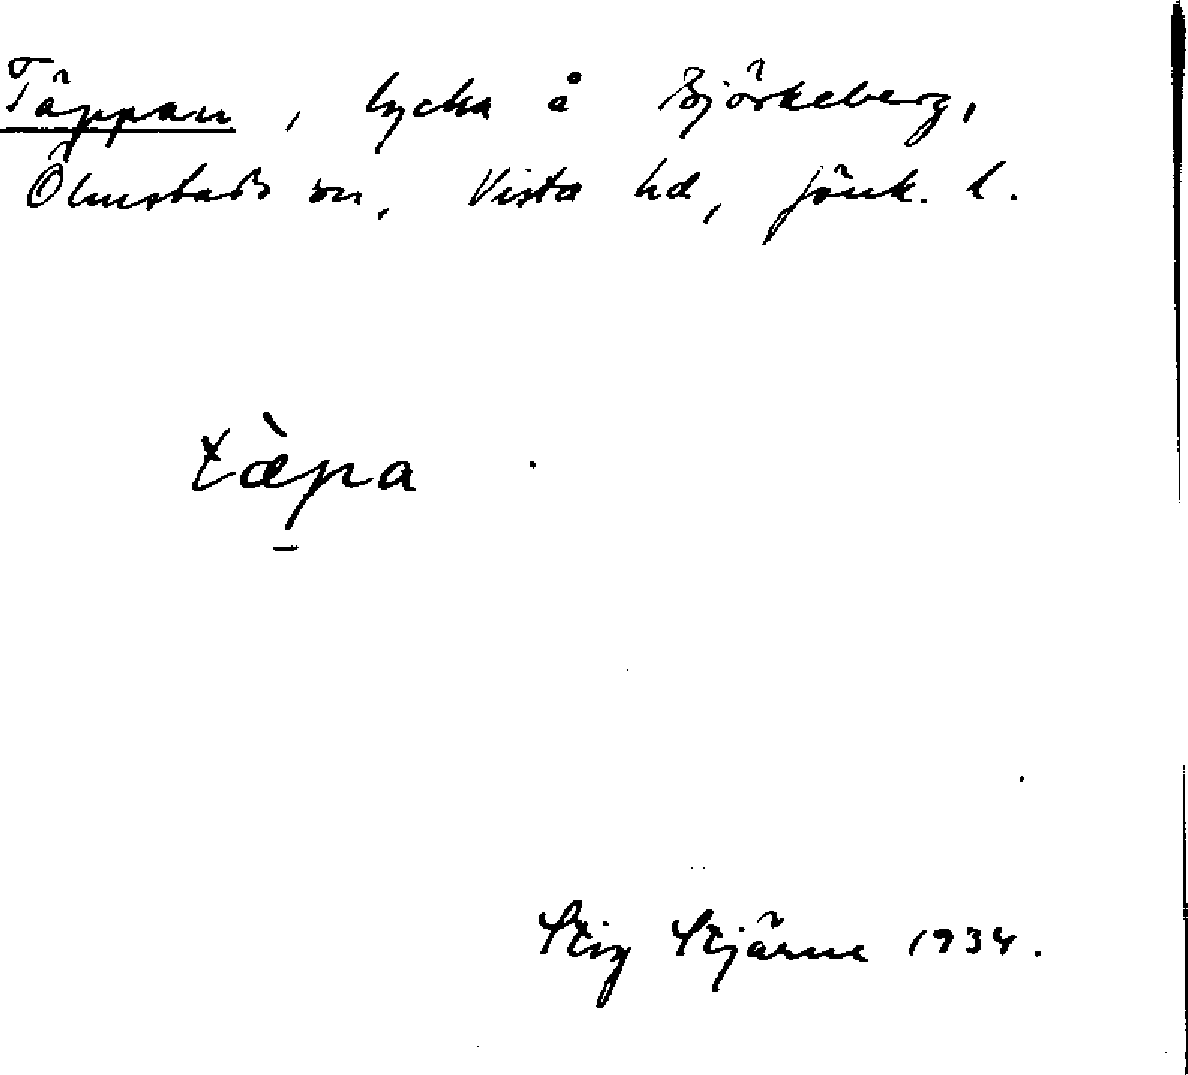 Täppan, lycka å Björkeberg,
Ölmstads sn, Vista hd, Jönk. l.
tæ̀pa
Stig Stjärne 1934.